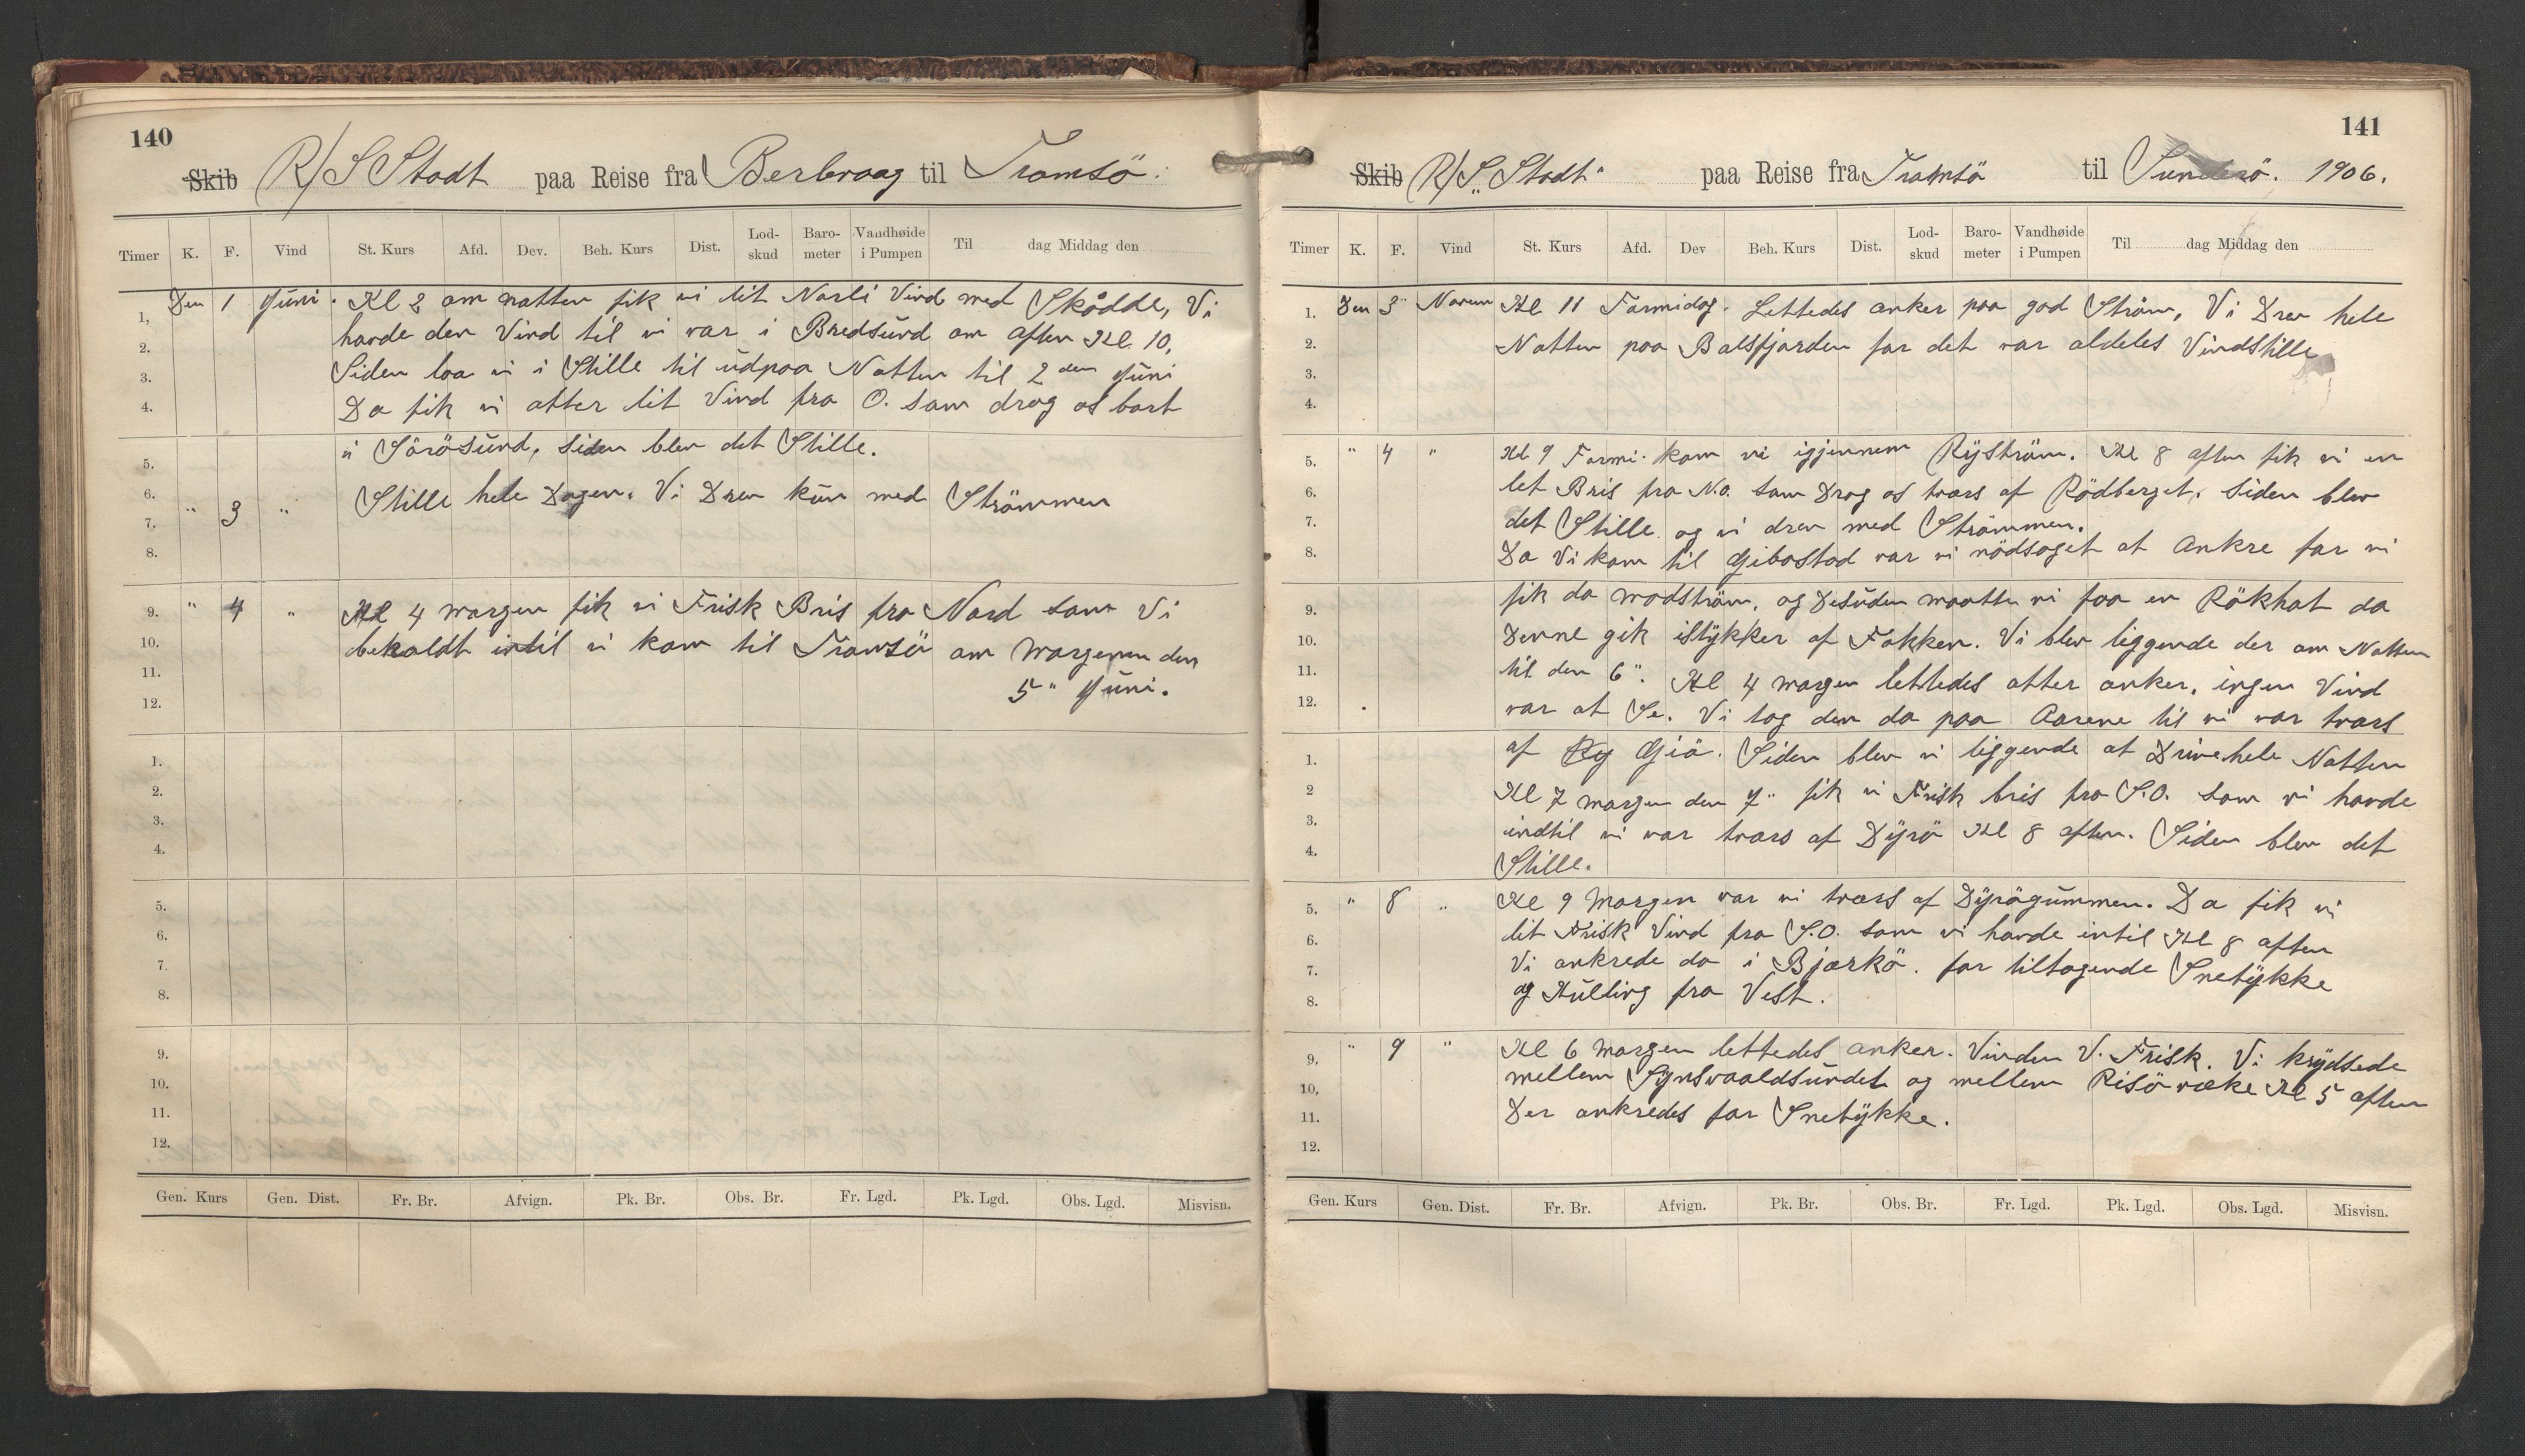 140
Skib R/S Stadt paa Reise fra Berbvaag til Tromsö.
Timer K. F. Vind St. Kurs Afd. Dev. Beh. Kurs Dist. Lod-skud Baro-meter Vandhøide i Pumpen Til dag Middag den
Den 1 Juni. Kl 2 om natten fik vi lit Nasli Vind med Skådde, Vi
havde den Vind til vi var i Bredsund om aften Kl. 10.
Siden laa vi i Stille til udpaa Natten til 2den Juni
Da fik vi atter lit Vind fra O. som drog os bort
i Sörösund, siden blev det Stille.
" 3 " Stille hele Dagen. Vi Drev kun med Strömmen
" 4 " Kl 4 morgen fik vi Frisk Bris fra Nord som Vi
beholdt intil vi kom til Tromsö om Morgenen den
5" Juni.
1.
2.
3.
4.
5.
6.
7.
8.
9.
10.
11.
12.
1.
2.
3.
4.
5.
6.
7.
8.
9.
10.
11.
12.
Gen. Kurs Gen. Dist. Fr. Br. Afvign. Pk. Br. Obs. Br. Fr. Lgd. Pk. Lgd. Obs. Lgd. Misvisn.
141
Skib R/S "Stadt" paa Reise fra Tromsö til 1906.
Timer K. F. Vind St. Kurs Afd. Dev Beh. Kurs Dist. Lod-skud Baro-meter Vandhøide i Pumpen Til dag Middag den
Den 3" Novem Kl 11 Formidag. Lettedes anker paa god Ström, Vi Drev hele
Natten paa Balsfjorden for det var aldeles Vindstille
" 4 " Kl 9 Formi. kom vi igjennem Ryström. Kl 8 aften fik vi en
let Bris fra N.O. som Drog os tvars af Rödberget, siden blev
det Stille og vi drev med Strömmen.
Da Vi kom til Gibostad var vi nödsaget at Ankre for vi
fik da modström, og Desuden maatte vi faa en Rökhat da
Denne gik istykker af Fokken. Vi blev liggende der om Natten
til den 6". Kl 4 morgen lettedes atter anker, ingen Vind
var at Se. Vi tog den da paa Aarene til vi var tvars
af Giö. Siden blev vi liggende at Drive hele Natten
Kl 7 morgen den 7" fik vi Frisk bris fra S.O. som vi havde
indtil vi var tvars af Dyrö Kl 8 aften. Siden blev det
Stille.
" 8 " Kl 9 Morgen var vi tvers af Dyrögummen. Da fik vi
lit Frisk Vind fra S.O. som vi havde intil Kl 8 aften
Vi ankrede da i Bjarkö. for tiltagende Snetykke
og Kulling fra Vest.
" 9 " Kl 6 Morgen lettedes anker. Vinden V. Frisk. Vi krydsede
mellem Synsvaaldsundet og mellem Risö ræke Kl 5 aften
Der ankredes for Snetykke.
1.
2.
3.
4.
5.
6.
7.
8.
9.
10.
11.
12.
1.
2
3.
4.
5.
6.
7.
8.
9.
10.
11.
12.
Gen. Kurs Gen. Dist. Fr. Br. Afvign. Pk. Br. Obs. Br. Fr. Lgd. Pk. Lgd. Obs. Lgd. Misvisn.